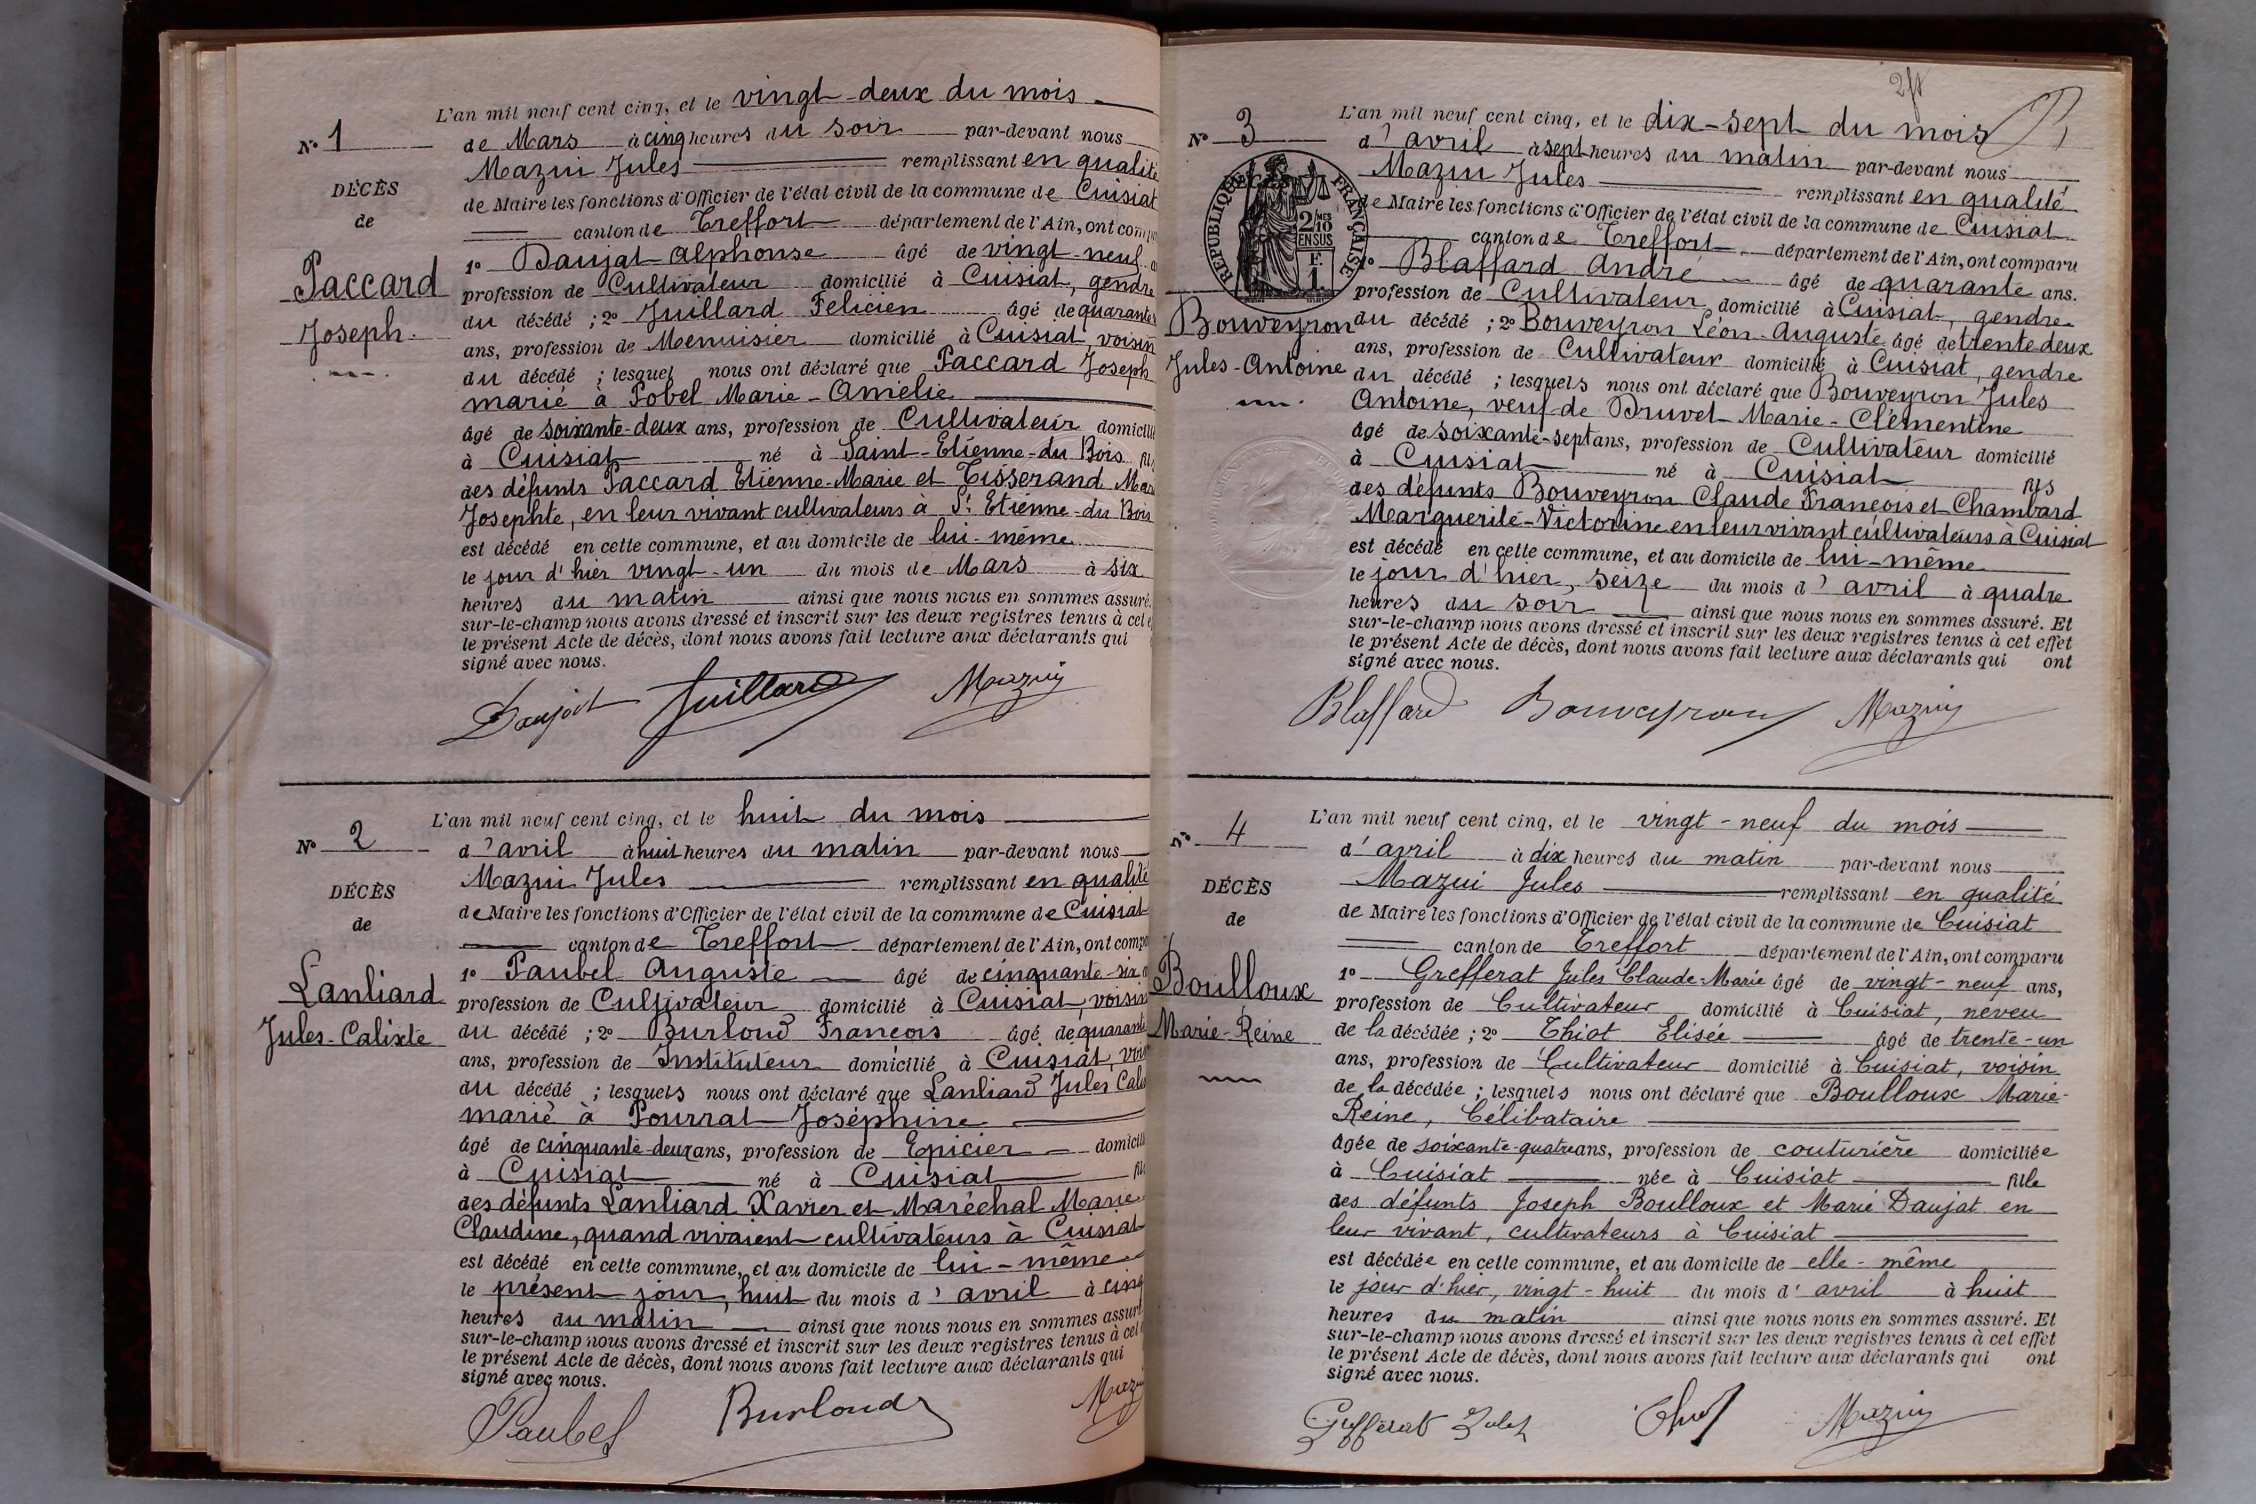 L'an mil neuf cent cinq, et le vingt-deux du mois
N° 1
de Mars à cinq heures du soir par-devant nous
Mazui Jules remplissant en qualité
DÉCÈS
de Maire les fonctions d'Officier de l'état civil de la commune de Cuisiat
de
canton de Treffort département de l'Ain, ont
1° Daujat Alphonse âgé de vingt-neuf
Paccard
profession de Cultivateur domicilié à Cuisiat, gendre
du décédé ; 2° Juillard Felicien âgé de quarante
Joseph.
ans, profession de Menuisier domicilié à Cuisiat, voisin
du décédé ; lesquel nous ont déclaré que Paccard Joseph
marié à Pobel Marie-Amélie
âgé de soixante-deux ans, profession de Cultivateur
à Cuisiat né à Saint-Etienne-du Bois
des défunts Paccard Etienne-Marie et Tisserand
Josephte, en leur vivant cultivateurs à St Etienne-du Bois
est décédé en cette commune, et au domicile de lui-même
le jour d'hier vingt-un du mois de Mars à six
heures du matin ainsi que nous nous en sommes assuré.
sur-le-champ nous avons dressé et inscrit sur les deux registres tenus à cet
le présent Acte de décès, dont nous avons fait lecture aux déclarants qui
signé avec nous.
Daujat Juillard Mazuy
L'an mil neuf cent cinq, et le huit du mois
N° 2
d'avril à huit heures du matin par-devant nous
Mazui Jules remplissant en qualité
DÉCÈS
de Maire les fonctions d'Officier de l'état civil de la commune de Cuisiat
de
canton de Treffort département de l'Ain, ont
1° Paubel Auguste âgé de cinquante-six
Lanliard
profession de Cultivateur domicilié à Cuisiat, voisin
Jules-Calixte
du décédé ; 2° Burloud François âgé de quarante
ans, profession de Instituteur domicilié à Cuisiat,
du décédé ; lesquels nous ont déclaré que Lanliard Jules
marié à Pourrat Joséphine
âgé de cinquante-deux ans, profession de Epicier
à Cuisiat né à Cuisiat
des défunts Lanliard Xavier et Maréchal Marie
Claudine, quand vivaient cultivateurs à Cuisiat
est décédé en cette commune, et au domicile de lui-même
le présent jour, huit du mois d'avril à cinq
heures du matin ainsi que nous nous en sommes assuré
sur-le-champ nous avons dressé et inscrit sur les deux registres tenus à cet
le présent Acte de décès, dont nous avons fait lecture aux déclarants qui
signé avec nous.
Paubel Burloud
L'an mil neuf cent cinq, et le dix-sept du mois
N° 3
d'avril à sept heures du matin par-devant nous
Mazui Jules remplissant en qualité
de Maire les fonctions d'Officier de l'état civil de la commune de Cuisiat
RÉPUBLIQUE FRANÇAISE
2/10 EN SUS
F. 1.
canton de Treffort département de l'Ain, ont comparu
1° Blaffard André âgé de quarante ans.
profession de Cultivateur domicilié à Cuisiat, gendre
Bouveyron
du décédé ; 2° Bouveyron Léon-Auguste âgé de trente deux
Jules-Antoine
ans, profession de Cultivateur domicilié à Cuisiat, gendre
du décédé ; lesquels nous ont déclaré que Bouveyron Jules
Antoine, veuf de Druvet Marie-Clémentine
âgé de soixante-sept ans, profession de Cultivateur domicilié
à Cuisiat né à Cuisiat fils
des défunts Bouveyron Claude François et Chambard
Marguerite-Victorine en leur vivant cultivateurs à Cuisiat
est décédé en cette commune, et au domicile de lui-même
le jour d'hier, seize du mois d'avril à quatre
heures du soir ainsi que nous nous en sommes assuré. Et
sur-le-champ nous avons dressé et inscrit sur les deux registres tenus à cet effet
le présent Acte de décès, dont nous avons fait lecture aux déclarants qui ont
signé avec nous.
Blaffard Bouveyron Mazuy
L'an mil neuf cent cinq, et le vingt-neuf du mois
N° 4
d'avril à dix heures du matin par-devant nous
Mazui Jules remplissant en qualité
DÉCÈS
de Maire les fonctions d'Officier de l'état civil de la commune de Cuisiat
de
canton de Treffort département de l'Ain, ont comparu
1° Grefferat Jules Claude-Marie âgé de vingt-neuf ans,
Boulloux
profession de Cultivateur domicilié à Cuisiat, neveu
Marie-Reine
de la décédée ; 2° Thiot Elisée âgé de trente-un
ans, profession de Cultivateur domicilié à Cuisiat, voisin
de la décédée ; lesquels nous ont déclaré que Boulloux Marie-
Reine, Célibataire
âgée de soixante-quatre ans, profession de couturière domiciliée
à Cuisiat née à Cuisiat fille
des défunts Joseph Boulloux et Marie Daujat en
leur vivant, cultivateurs à Cuisiat
est décédée en cette commune, et au domicile de elle-même
le jour d'hier, vingt-huit du mois d'avril à huit
heures du matin ainsi que nous nous en sommes assuré. Et
sur-le-champ nous avons dressé et inscrit sur les deux registres tenus à cet effet
le présent Acte de décès, dont nous avons fait lecture aux déclarants qui ont
signé avec nous.
Grefferat Jules Thiot Mazuy